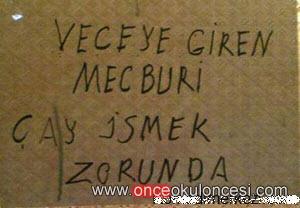 VECEYE GİREN
MECBURİ
ÇAY İSMEK
ZORUNDA
www.onceokuloncesi.com